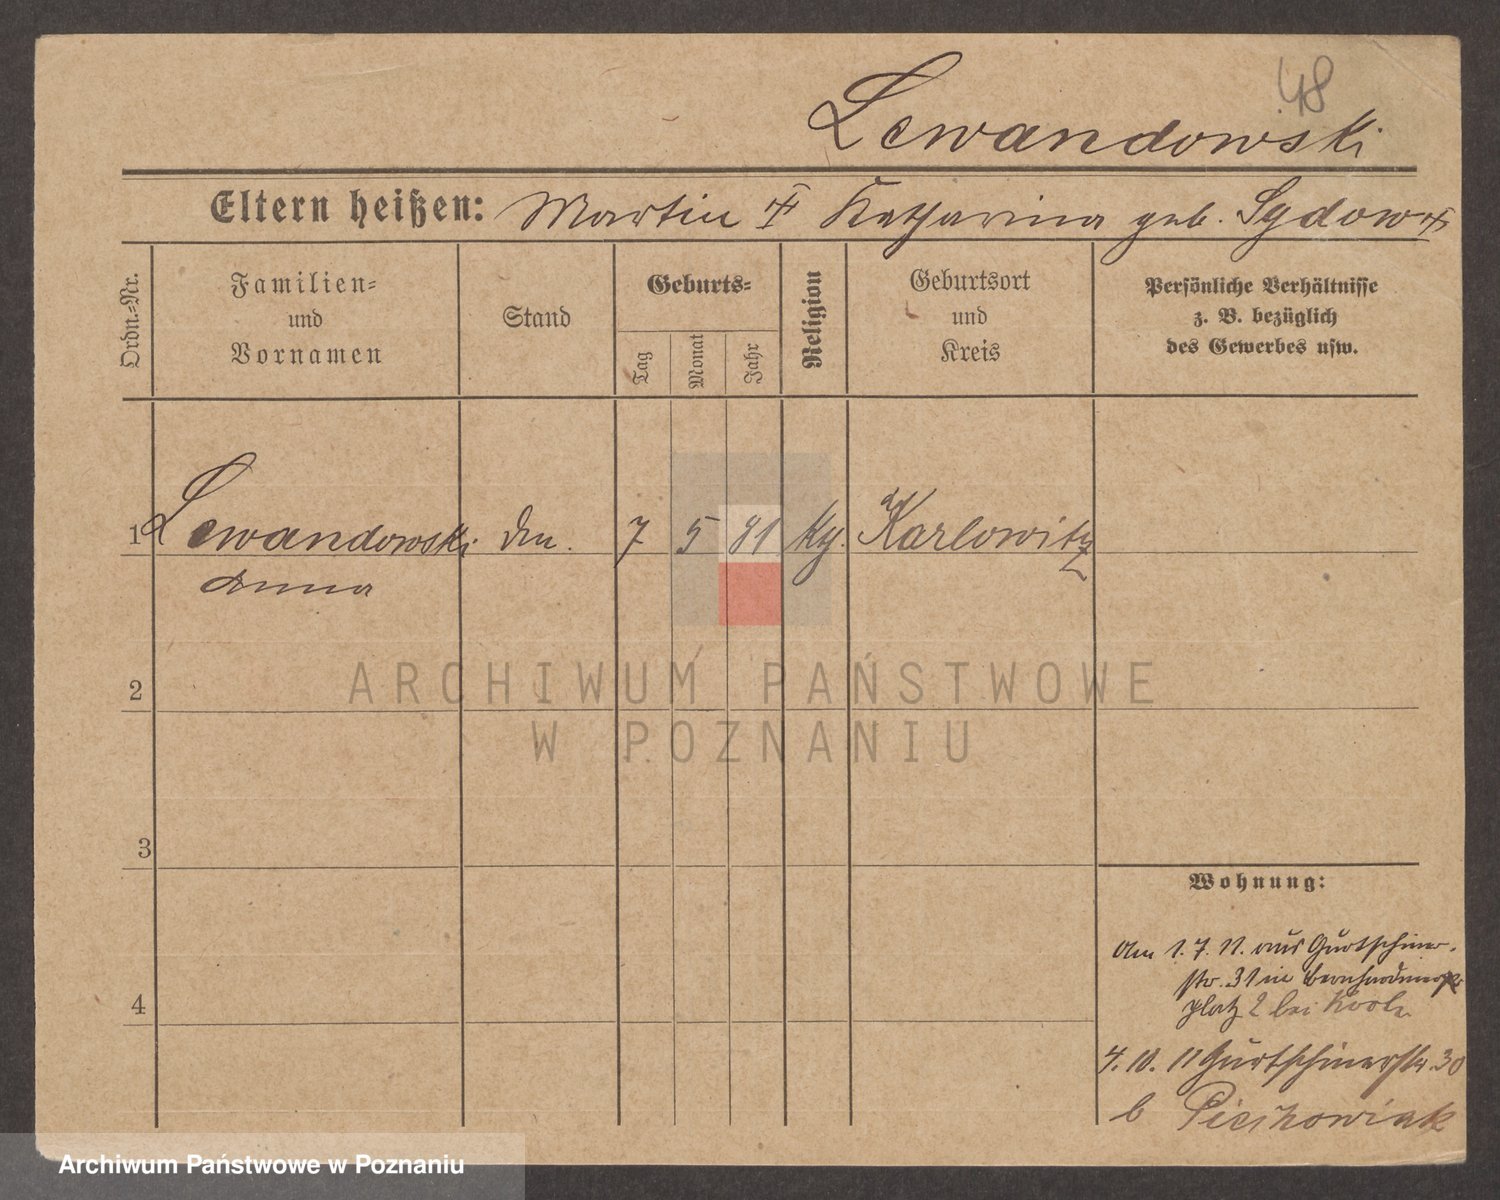 48
Lewandowski
Eltern heißen: Martin ╪ Katharina geb. Sydow ╪
Ordn.=Nr.
Familien=
und
Vornamen
Stand
Geburts=
Tag
Monat
Jahr
Religion
Geburtsort
und
Kreis
Persönliche Verhältnisse
z. B. bezüglich
des Gewerbes usw.
1 Lewandowski 7 5 81 Karlowitz
Anna
2
3
4
ARCHIWUM PAŃSTWOWE
W POZNANIU
Wohnung:
Am 1. 7. 11. aus Gurtschiner-
str. 31 in Bernhardiner
platz 2 bei
4. 10. 11 Gurtschinerstr. 30
b Pieskowiak
Archiwum Państwowe w Poznaniu